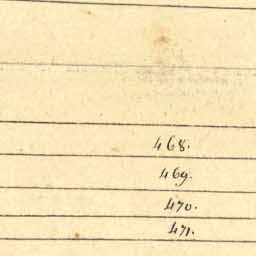 468.
469.
470.
471.